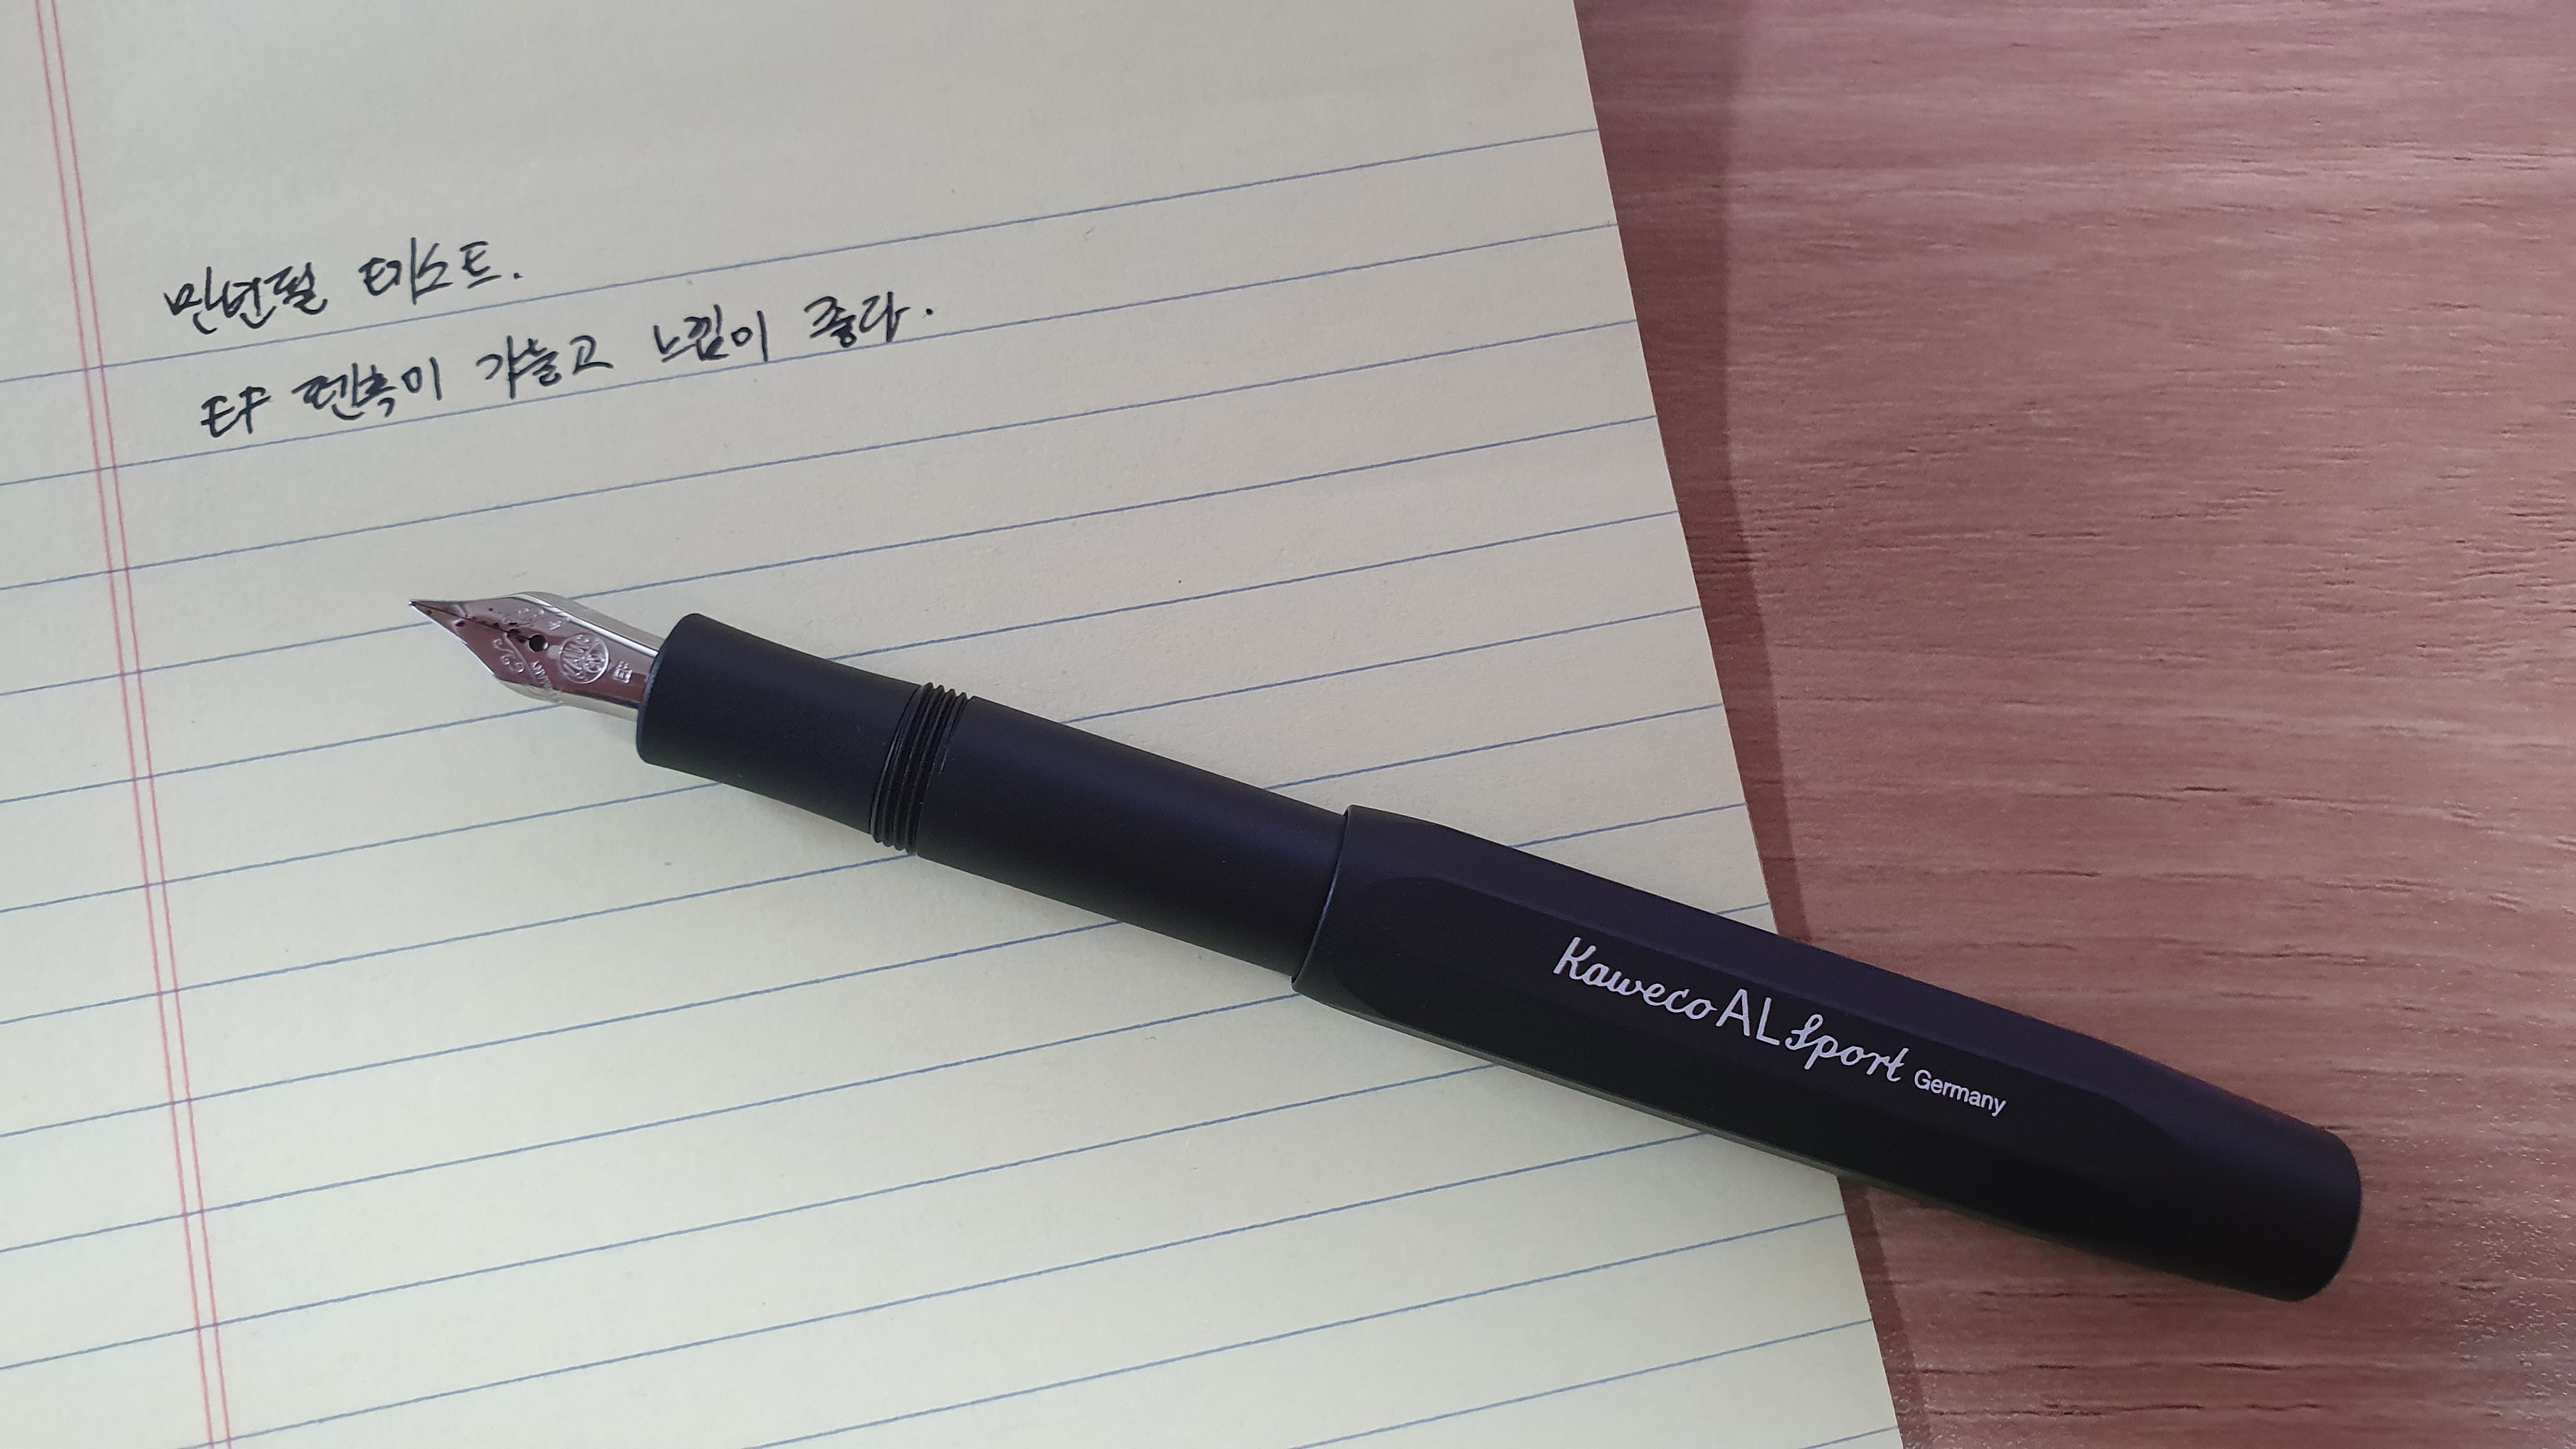 만년필 테스트.
EF 펜촉이 가늘고 느낌이 좋다.
EF
Kaweco AL Sport Germany